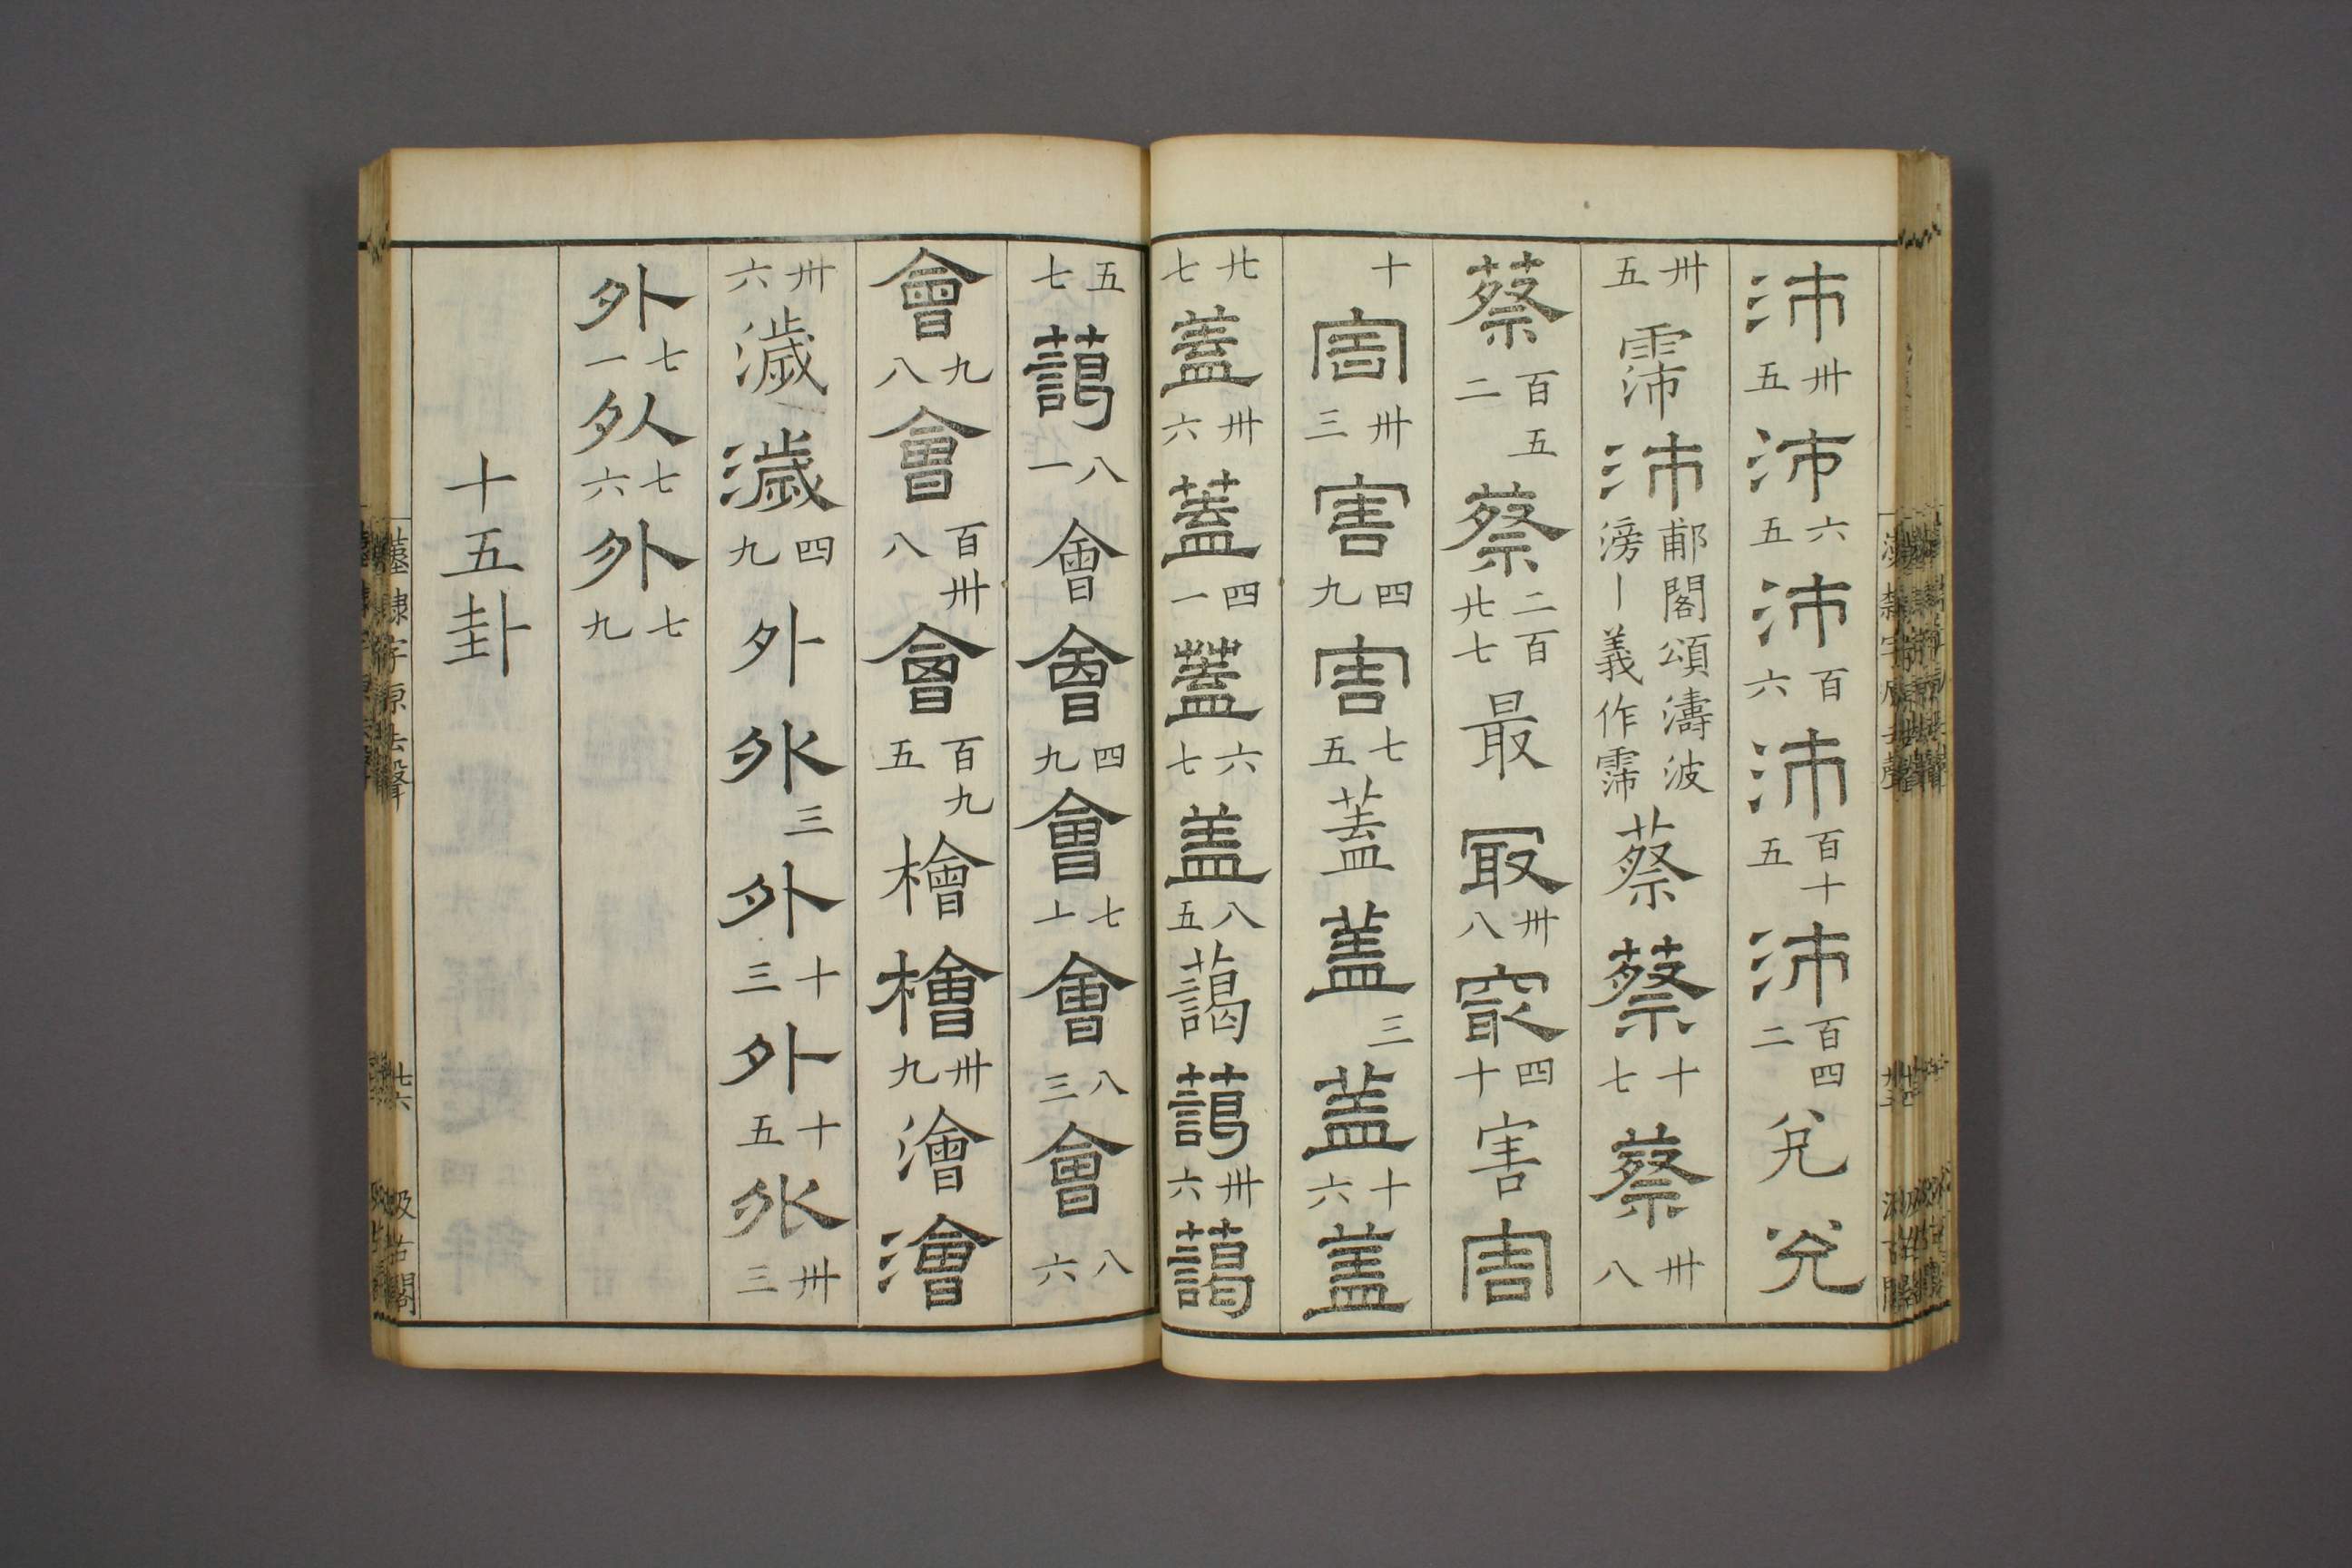 沛卅五沛六五沛百六沛百十五沛百四二兊兊
卅五霈沛郙閣頌濤波滂丨義作霈蔡蔡十七蔡卅八
蔡百五二蔡二百廿七最冣卅八冣四十害害
十害卅三害四九害七五蓋蓋三蓋十六蓋
廿七蓋卅六蓋四一蓋六七蓋八五藹藹卅六藹
五七藹八一會會四九會七十會八三會八六
會九八會百卅八會百九五檜檜卅九澮澮
卅六濊濊四九外外三外十三外十五外卅三
外七一外七六外七九
十五卦
漢隸字原去聲
七六
汲古閣